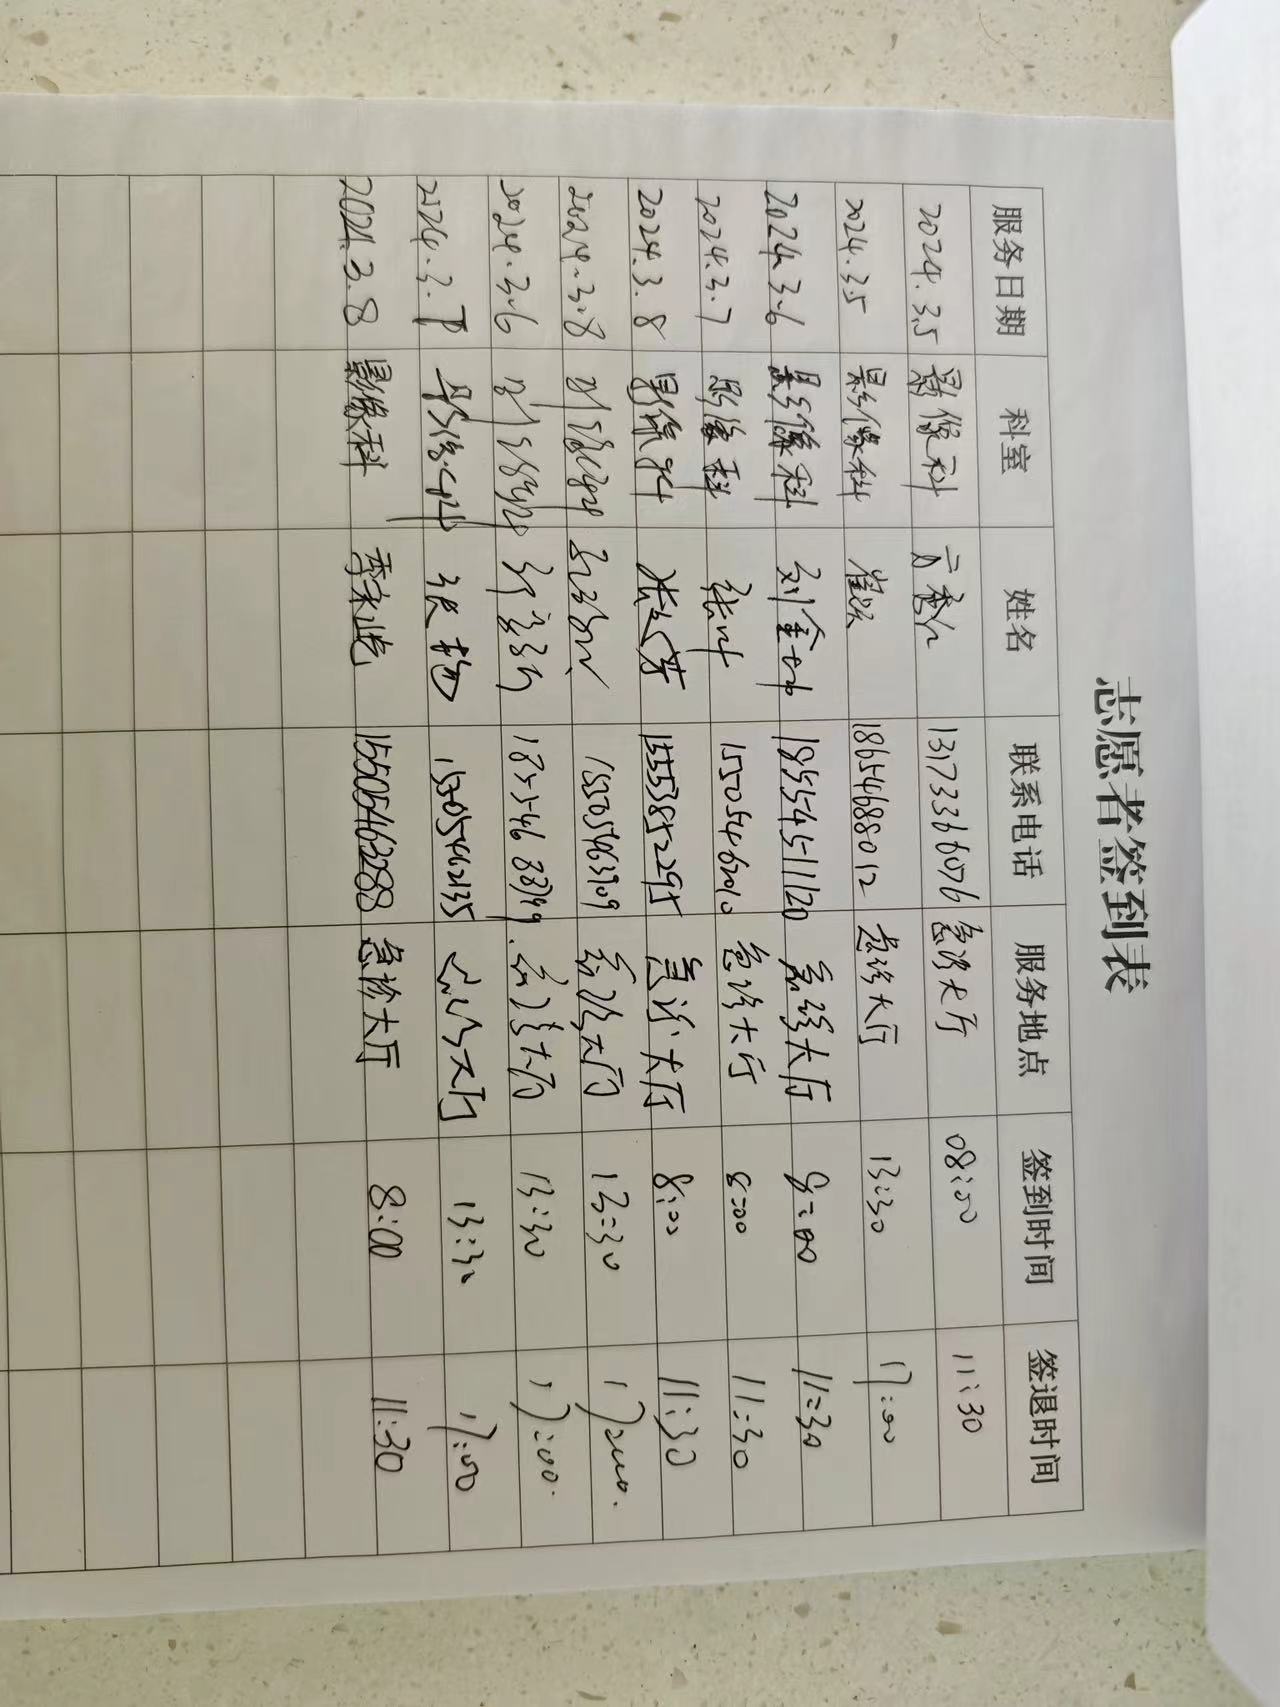 志愿者签到表
服务日期 科室 姓名 联系电话 服务地点 签到时间 签退时间
2024.3.5 影像科 13173366076 急诊大厅 08:00 11:30
2024.3.5 影像科 18654688012 急诊大厅 13:30 17:00
2024.3.6 影像科 刘金 急诊大厅 8:00 11:30
2024.3.7 影像科 张叶 急诊大厅 8:00 11:30
2024.3.8 影像科 15553852295 急诊大厅 8:00 11:30
2024.3.8 影像科 15505463909 急诊大厅 13:30 17:00.
2024.3.6 影像科 急诊大厅 13:30 17:00.
2024.3.7 影像科 张杨 15305462135 急诊大厅 13:30 17:00
2024.3.8 影像科 15505463288 急诊大厅 8:00 11:30